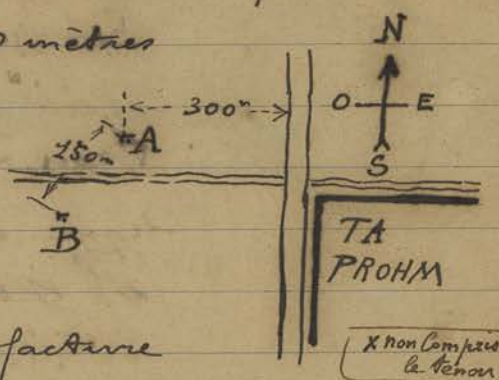 mètres
N
300m
O E
A
150m
S
B
TA
PROHM
facture
x non Compris
le tenon